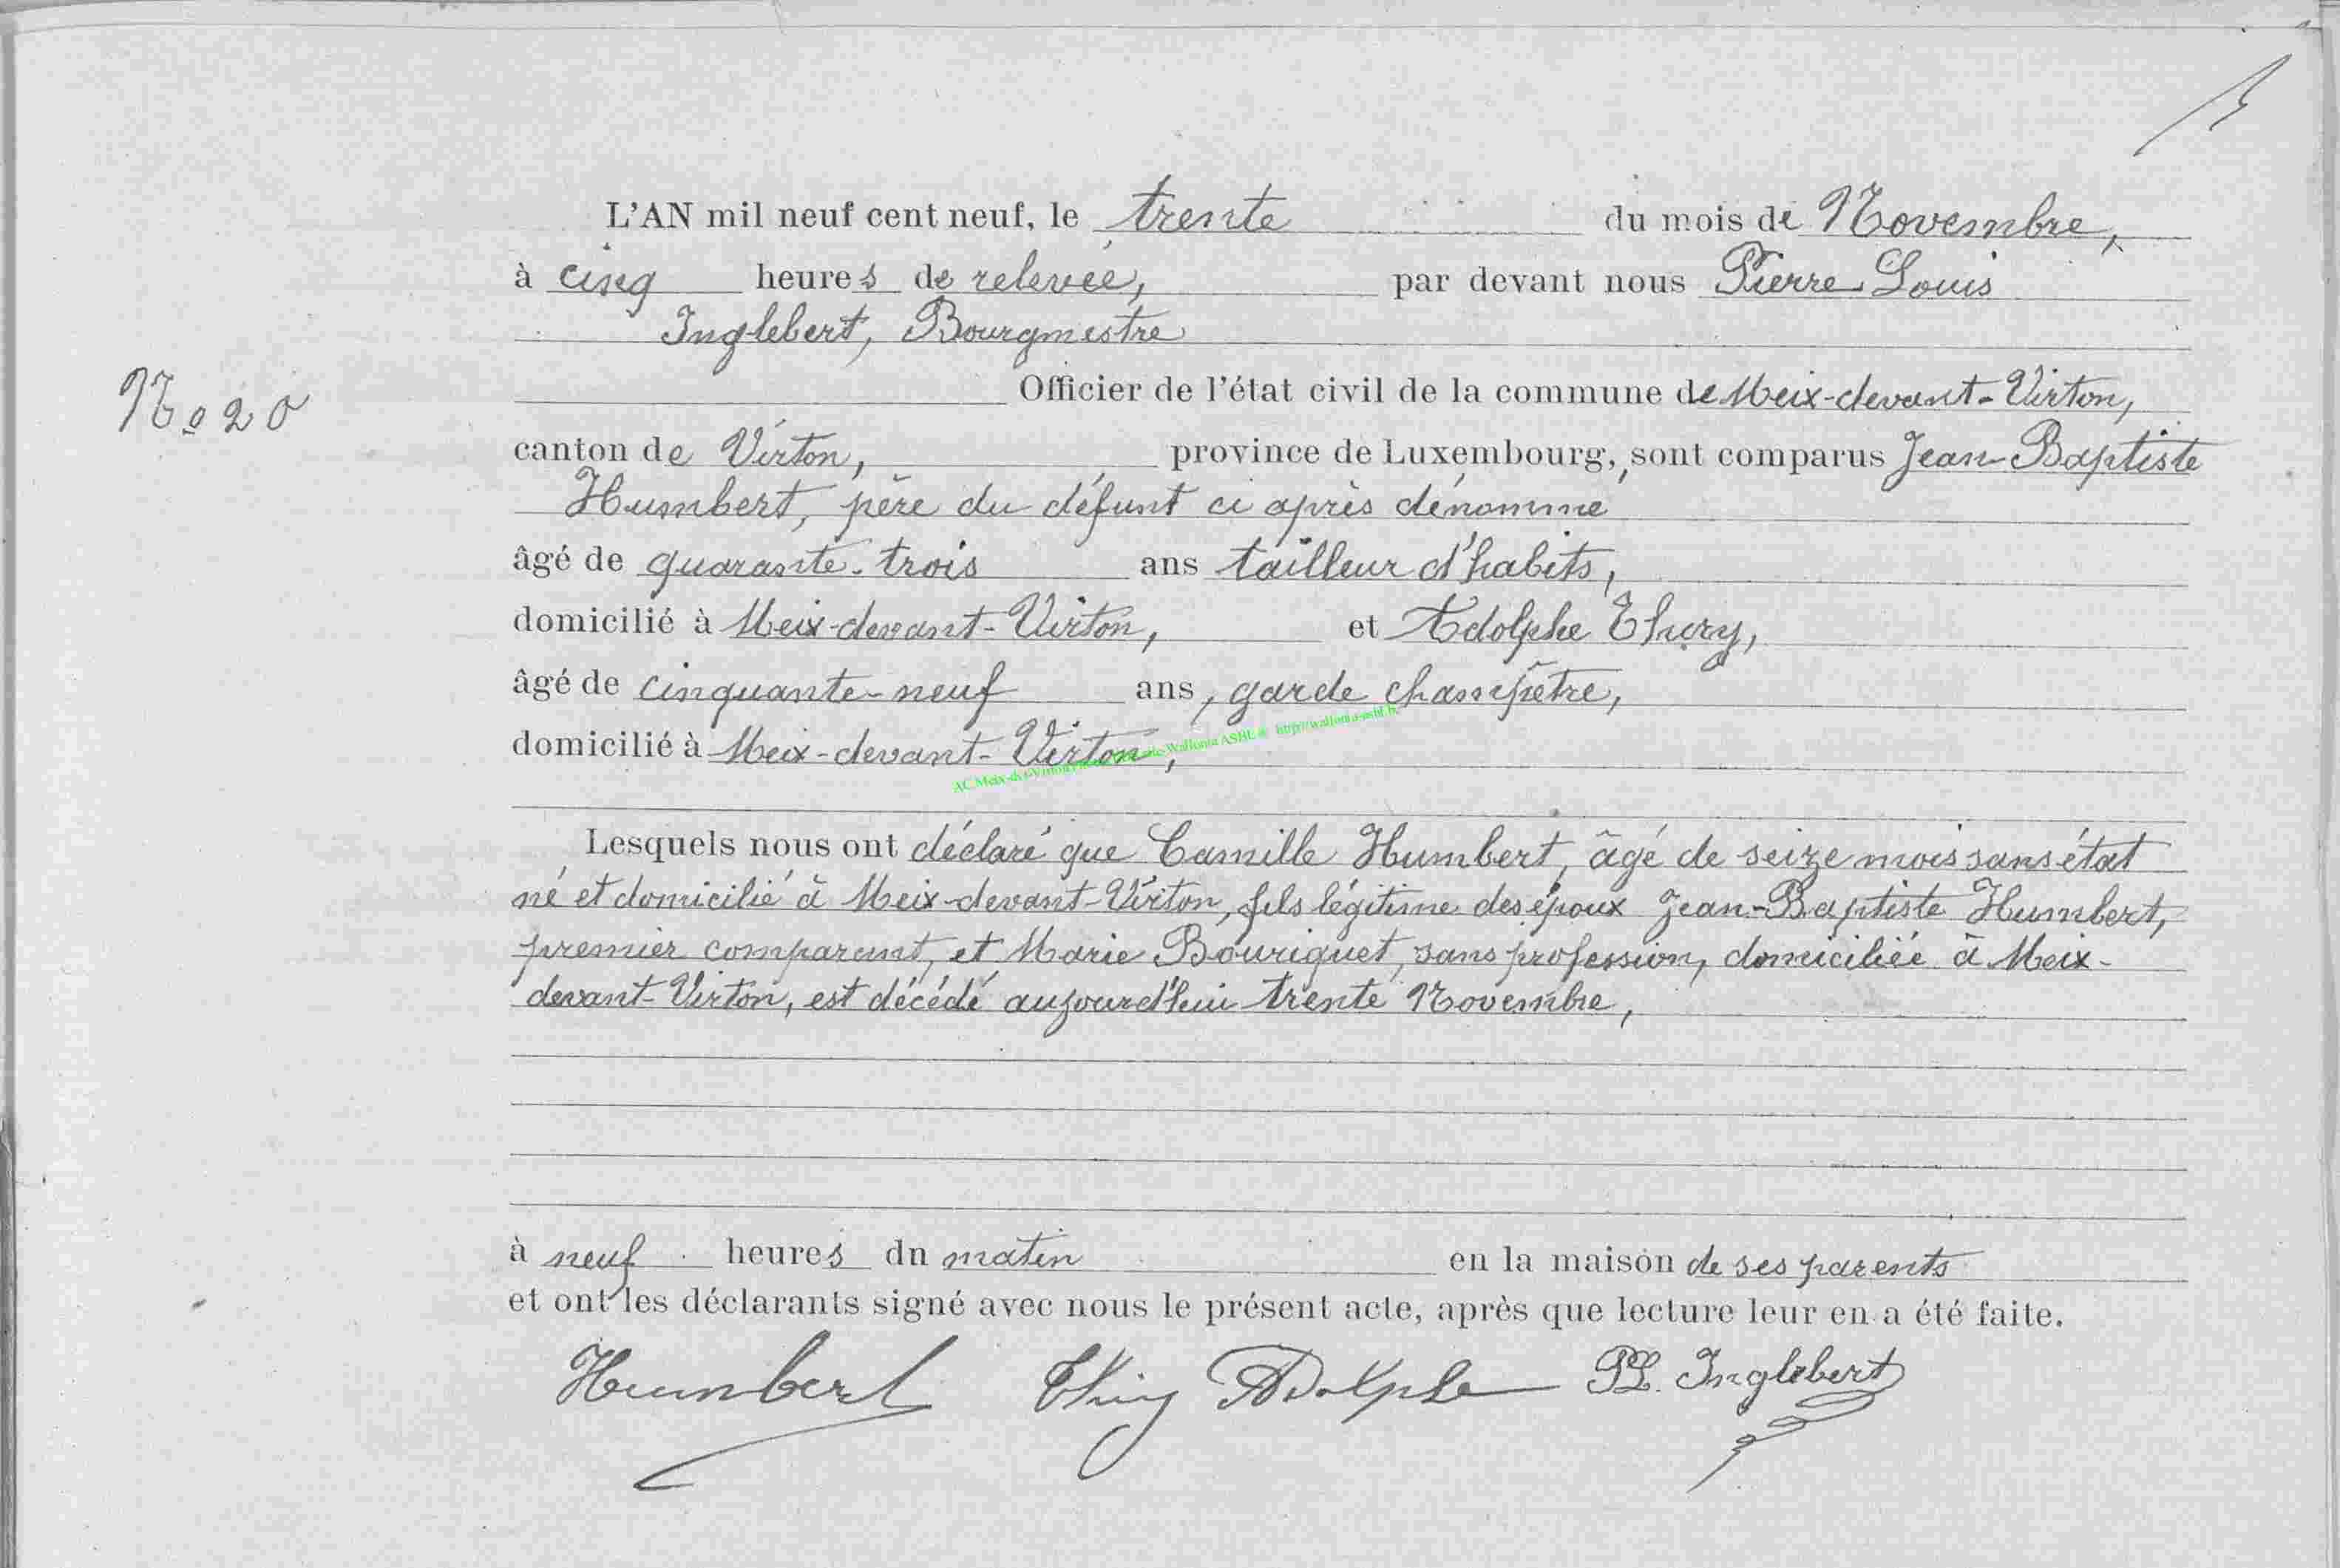 L'AN mil neuf cent neuf, le trente du mois de Novembre,
à cinq heures de relevée, par devant nous Pierre Louis
Inglebert, Bourgmestre
Officier de l'état civil de la commune de Meix-devant-Virton,
No 20
canton de Virton, province de Luxembourg, sont comparus Jean-Baptiste
Humbert, père du défunt ci après dénommé
âgé de quarante-trois ans tailleur d'habits,
domicilié à Meix-devant-Virton, et Adolphe Thiry,
âgé de cinquante-neuf ans, garde champêtre,
domicilié à Meix-devant-Virton,
Lesquels nous ont déclaré que Camille Humbert, âgé de seize mois sans état
né et domicilié à Meix-devant-Virton, fils légitime des époux Jean-Baptiste Humbert,
premier comparant, et Marie Bouriquet, sans profession, domiciliée à Meix-
devant-Virton, est décédé aujourd'hui trente Novembre,
à neuf heures du matin en la maison de ses parents
et ont les déclarants signé avec nous le présent acte, après que lecture leur en a été faite.
Humbert Thiry Adolphe PL. Inglebert